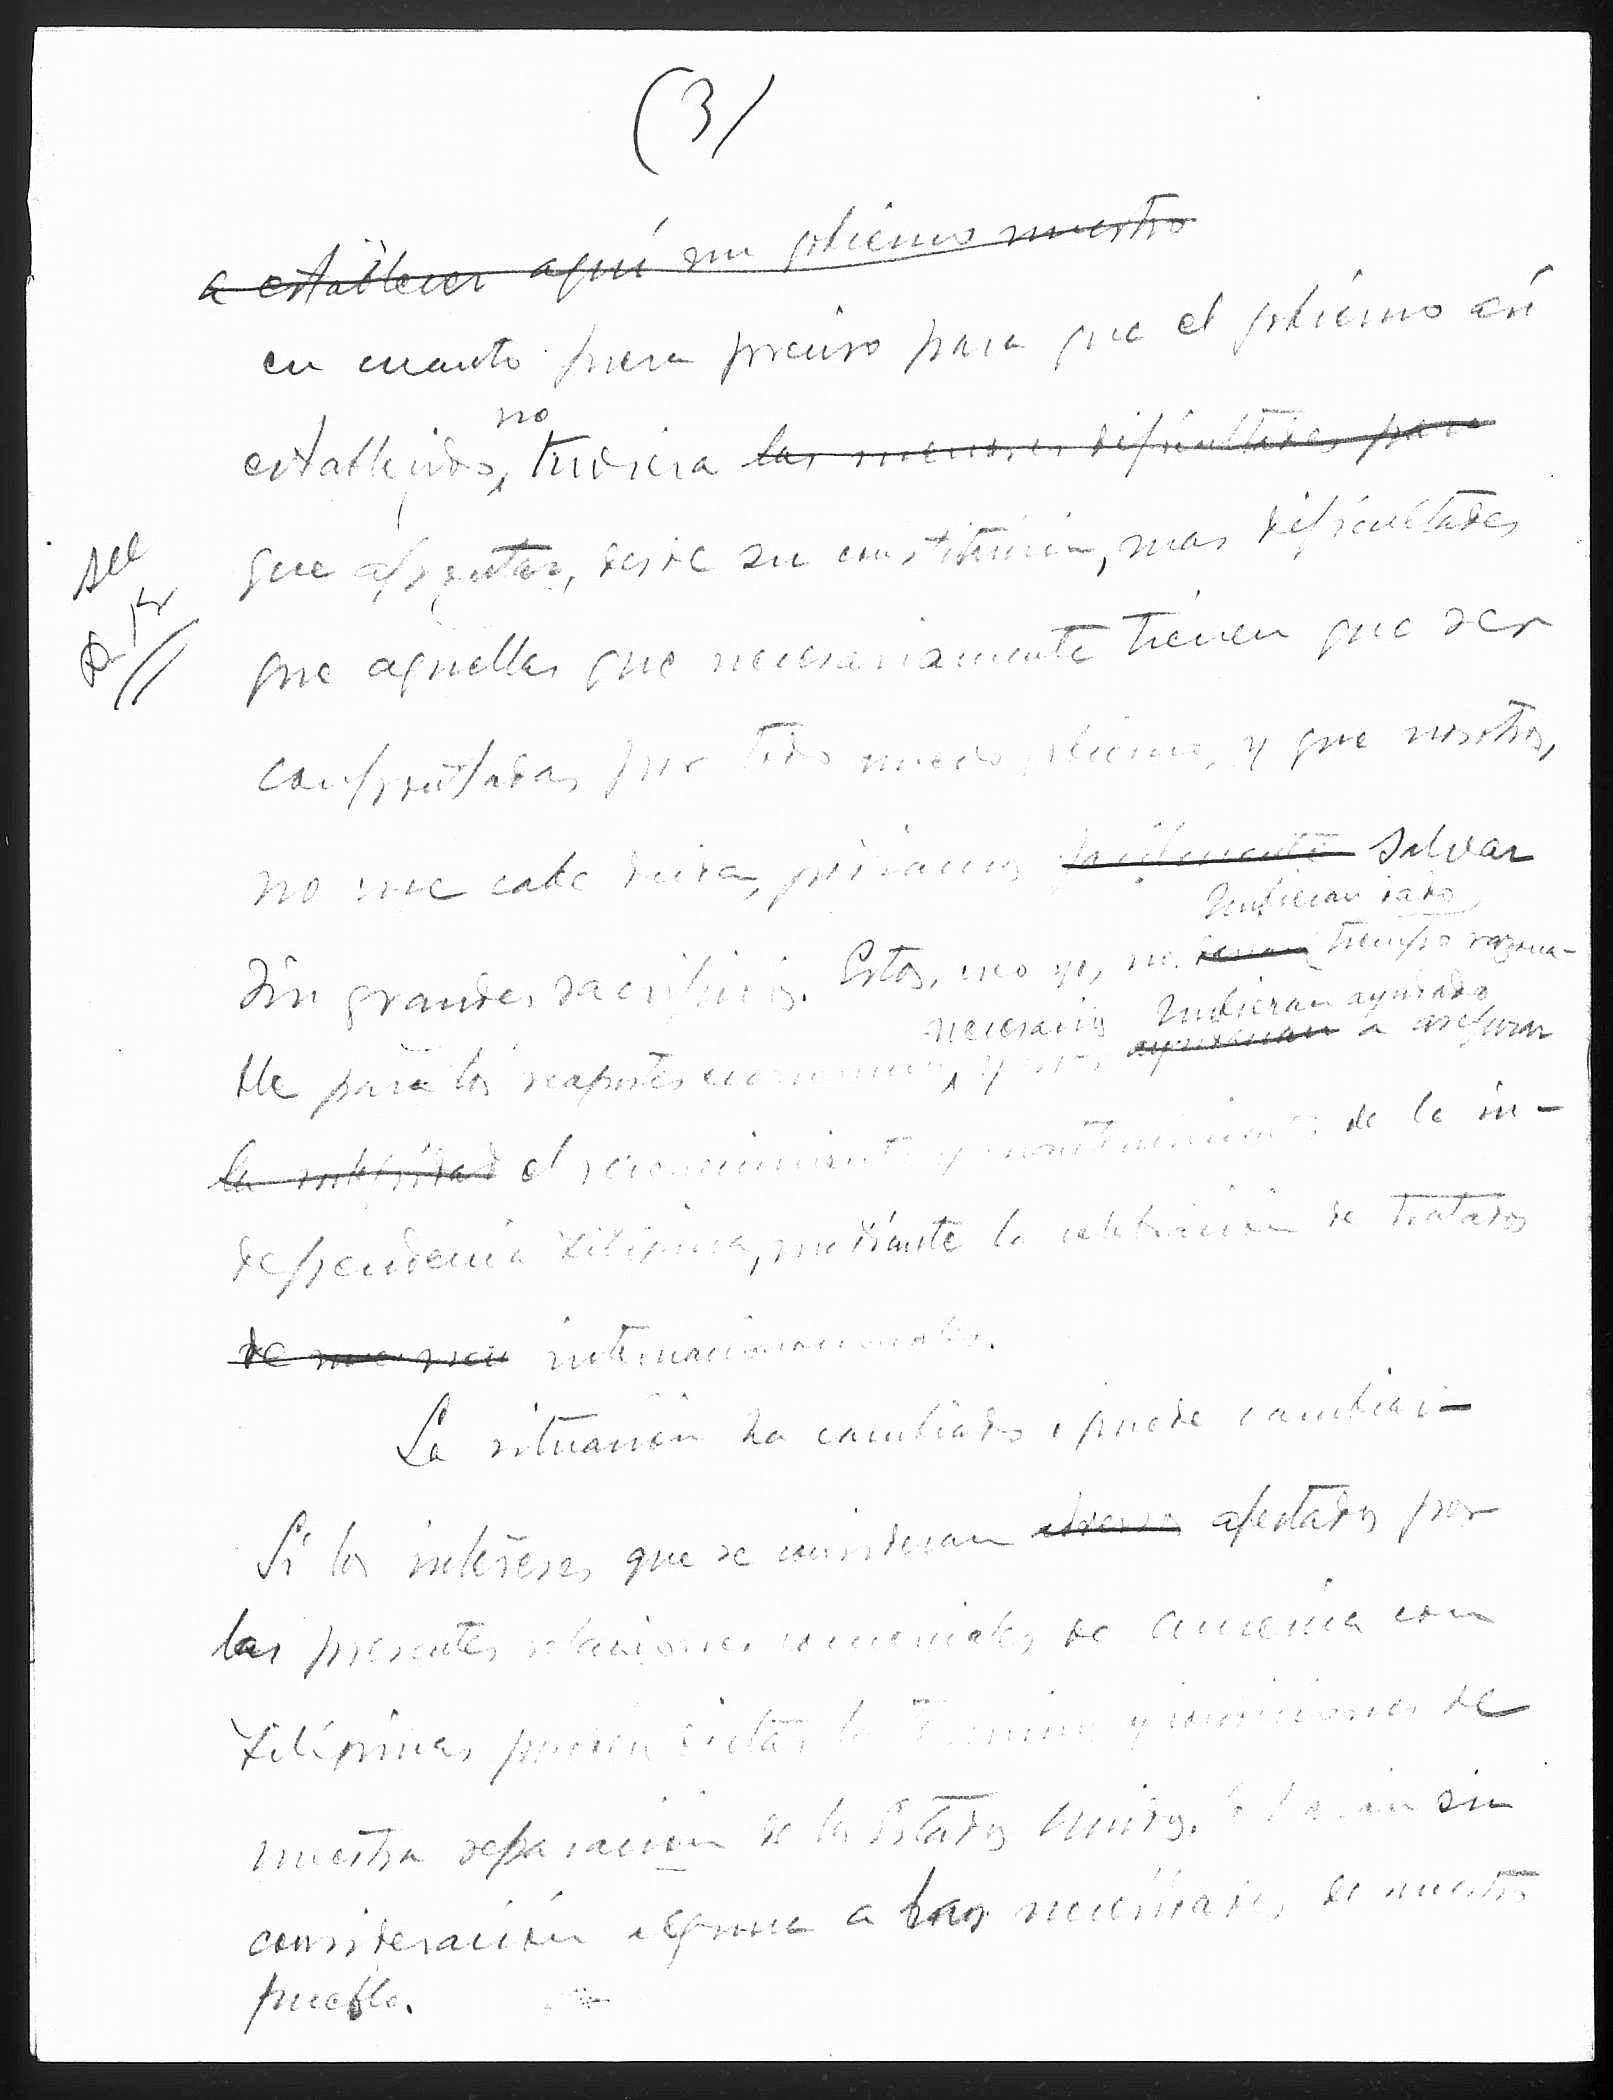 (3)
a establecer aquí un gobierno nuestro
en cuanto fuera preciso para que el gobierno así
no
establecido, tuviera las menores dificultades para
que afrontar, desde su constitución, mas dificultades
que aquellas que necesariamente tienen que ser
confrontadas por todo nuevo gobierno, y que nosotros,
no me cabe duda, podríamos facilmente salvar
hubieran dado
sin grandes sacrificios. Estos, creo yo, no tiempo razona-
necesarios hubieran ayudado
ble para los reajustes economicos, y nos ayudarian a asegurar
la integridad el reconocimiento y mantenimiento de la in-
dependencia Filipina, mediante la celebración de tratados
de internacionales.
La situación ha cambiado o puede cambiar—
Si los intereses que se consideran afectados por
las presentes relaciones comerciales de America con
Filipinas pueden dictar los terminos y condiciones de
nuestra separación de los Estados Unidos, lo harán sin
consideración alguna a las necesidades de nuestro
pueblo.